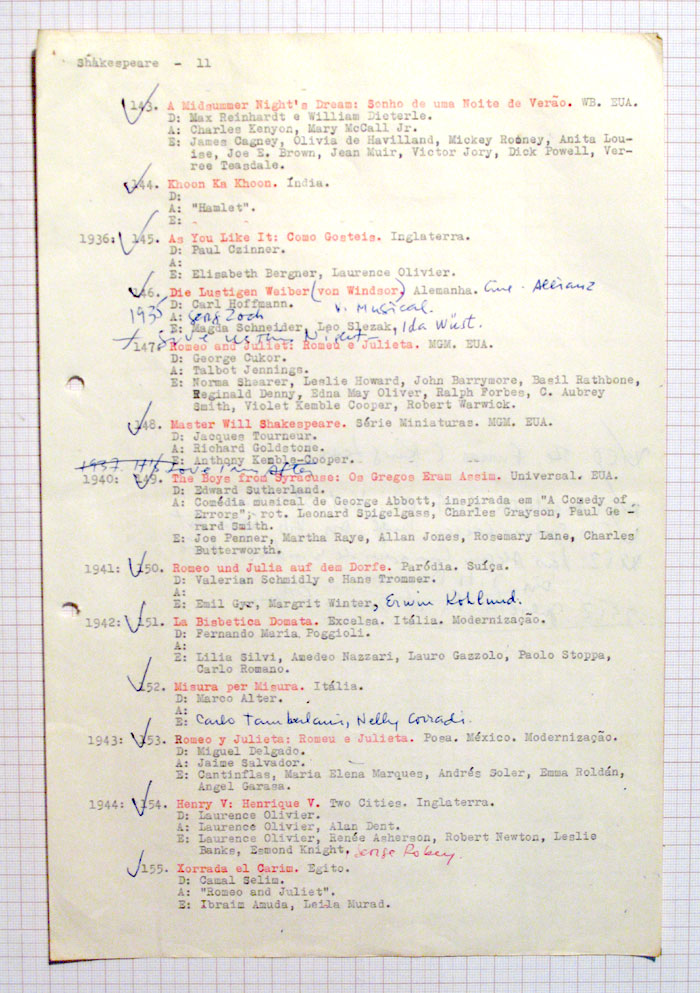 Shakespeare - 11
143. A Midsummer Night's Dream: Sonho de uma Noite de Verão. WB. EUA.
D: Max Reinhardt e William Dieterle.
A: Charles Kenyon, Mary McCall Jr.
E: James Cagney, Olivia de Havilland, Mickey Rooney, Anita Lou-
ise, Joe E. Brown, Jean Muir, Victor Jory, Dick Powell, Ver-
ree Teasdale.
144. Khoon Ka Khoon. Índia.
D:
A: "Hamlet".
E: - -
1936: 145. As You Like It: Como Gosteis. Inglaterra.
D: Paul Czinner.
A:
E: Elisabeth Bergner, Laurence Olivier.
146. Die Lustigen Weiber (von Windsor) Alemanha. Cine-Allianz
D: Carl Hoffmann.
1935 A: Georg Zoch v. Musical.
E: Magda Schneider, Leo Slezak, Ida Wüst.
Give us this Night
147. Romeo and Juliet: Romeu e Julieta. MGM. EUA.
D: George Cukor.
A: Talbot Jennings.
E: Norma Shearer, Leslie Howard, John Barrymore, Basil Rathbone,
Reginald Denny, Edna May Oliver, Ralph Forbes, C. Aubrey
Smith, Violet Kemble Cooper, Robert Warwick.
148. Master Will Shakespeare. Série Miniaturas. MGM. EUA.
D: Jacques Tourneur.
A: Richard Goldstone.
E: Anthony Kemble-Cooper.
1937. It's Love I'm After
1940: 149. The Boys from Syracuse: Os Gregos Eram Assim. Universal. EUA.
D: Edward Sutherland.
A: Comédia musical de George Abbott, inspirada em "A Comedy of
Errors"; rot. Leonard Spigelgass, Charles Grayson, Paul Ge -
rard Smith.
E: Joe Penner, Martha Raye, Allan Jones, Rosemary Lane, Charles
Butterworth.
1941: 150. Romeo und Julia auf dem Dorfe. Paródia. Suíça.
D: Valerian Schmidly e Hans Trommer.
A:
E: Emil Gyr, Margrit Winter, Erwin Kohlund.
1942: 151. La Bisbetica Domata. Excelsa. Itália. Modernização.
D: Fernando Maria Poggioli.
A:
E: Lilia Silvi, Amedeo Nazzari, Lauro Gazzolo, Paolo Stoppa,
Carlo Romano.
152. Misura per Misura. Itália.
D: Marco Alter.
A:
E: Carlo Tamberlani, Nelly Corradi.
1943: 153. Romeo y Julieta: Romeu e Julieta. Posa. México. Modernização.
D: Miguel Delgado.
A: Jaime Salvador.
E: Cantinflas, Maria Elena Marques, Andrés Soler, Emma Roldán,
Angel Garasa.
1944: 154. Henry V: Henrique V. Two Cities. Inglaterra.
D: Laurence Olivier.
A: Laurence Olivier, Alan Dent.
E: Laurence Olivier, Renée Asherson, Robert Newton, Leslie
Banks, Esmond Knight, George Robey.
155. Xorrada el Carim. Egito.
D: Camal Selim.
A: "Romeo and Juliet".
E: Ibraim Amuda, Leila Murad.